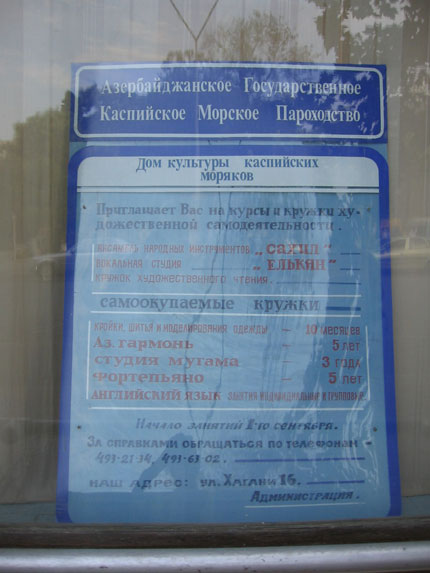 Азербайджанское Государственное
Каспийское Морское Пароходство
Дом культуры каспийских
моряков
Приглашает Вас на курсы и кружки ху-
дожественной самодеятельности.
Ансамбль народных инструментов „САХИЛ"
Вокальная студия „ЕЛЬКЯН"
Кружок художественного чтения.
самоокупаемые кружки
Кройки, шитья и моделирования одежды – 10 месяцев
Аз. гармонь – 5 лет
студия мугама – 3 года
Фортепьяно – 5 лет
Английский язык занятия индивидуальные и групповые
Начало занятий 1го сентября.
За справками обращаться по телефонам –
493-21-34, 493-63-02.
наш адрес: ул. Хагани 16.
Администрация.